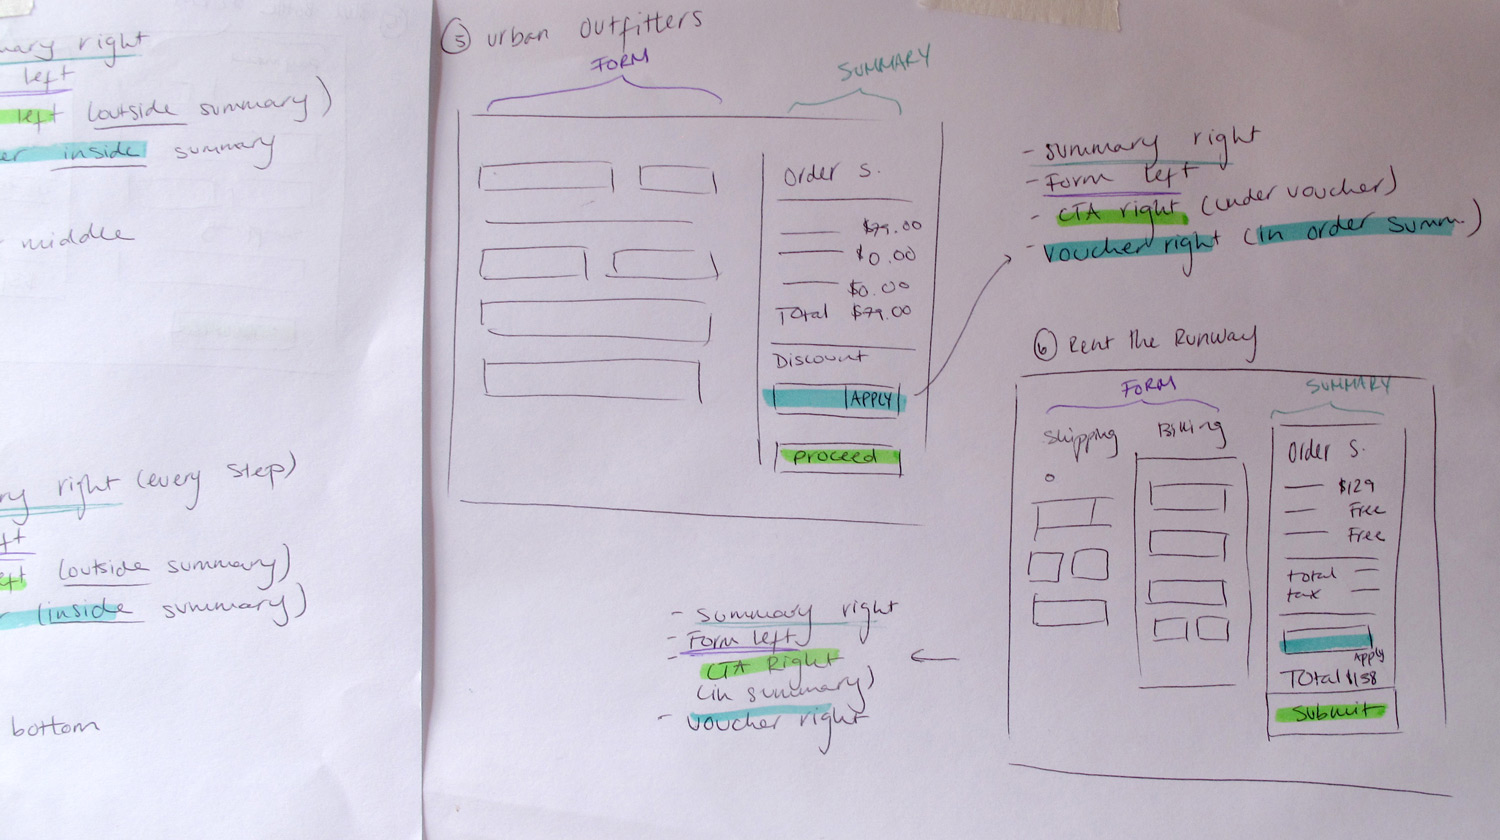 right
left
left (outside summary)
inside summary
middle
right (every step)
(outside summary)
(inside summary)
bottom
5 urban outfitters
FORM
SUMMARY
Order S.
$79.00
$0.00
$0.00
Total $79.00
Discount
APPLY
proceed
- summary right
- Form left
- CTA right (under voucher)
- voucher right (in order summ.)
6 Rent the Runway
FORM
SUMMARY
Shipping
Billing
Order S.
$129
Free
Free
total
tax
Apply
Total $158
Submit
- summary right
- Form left
- CTA Right
(in summary)
- voucher right